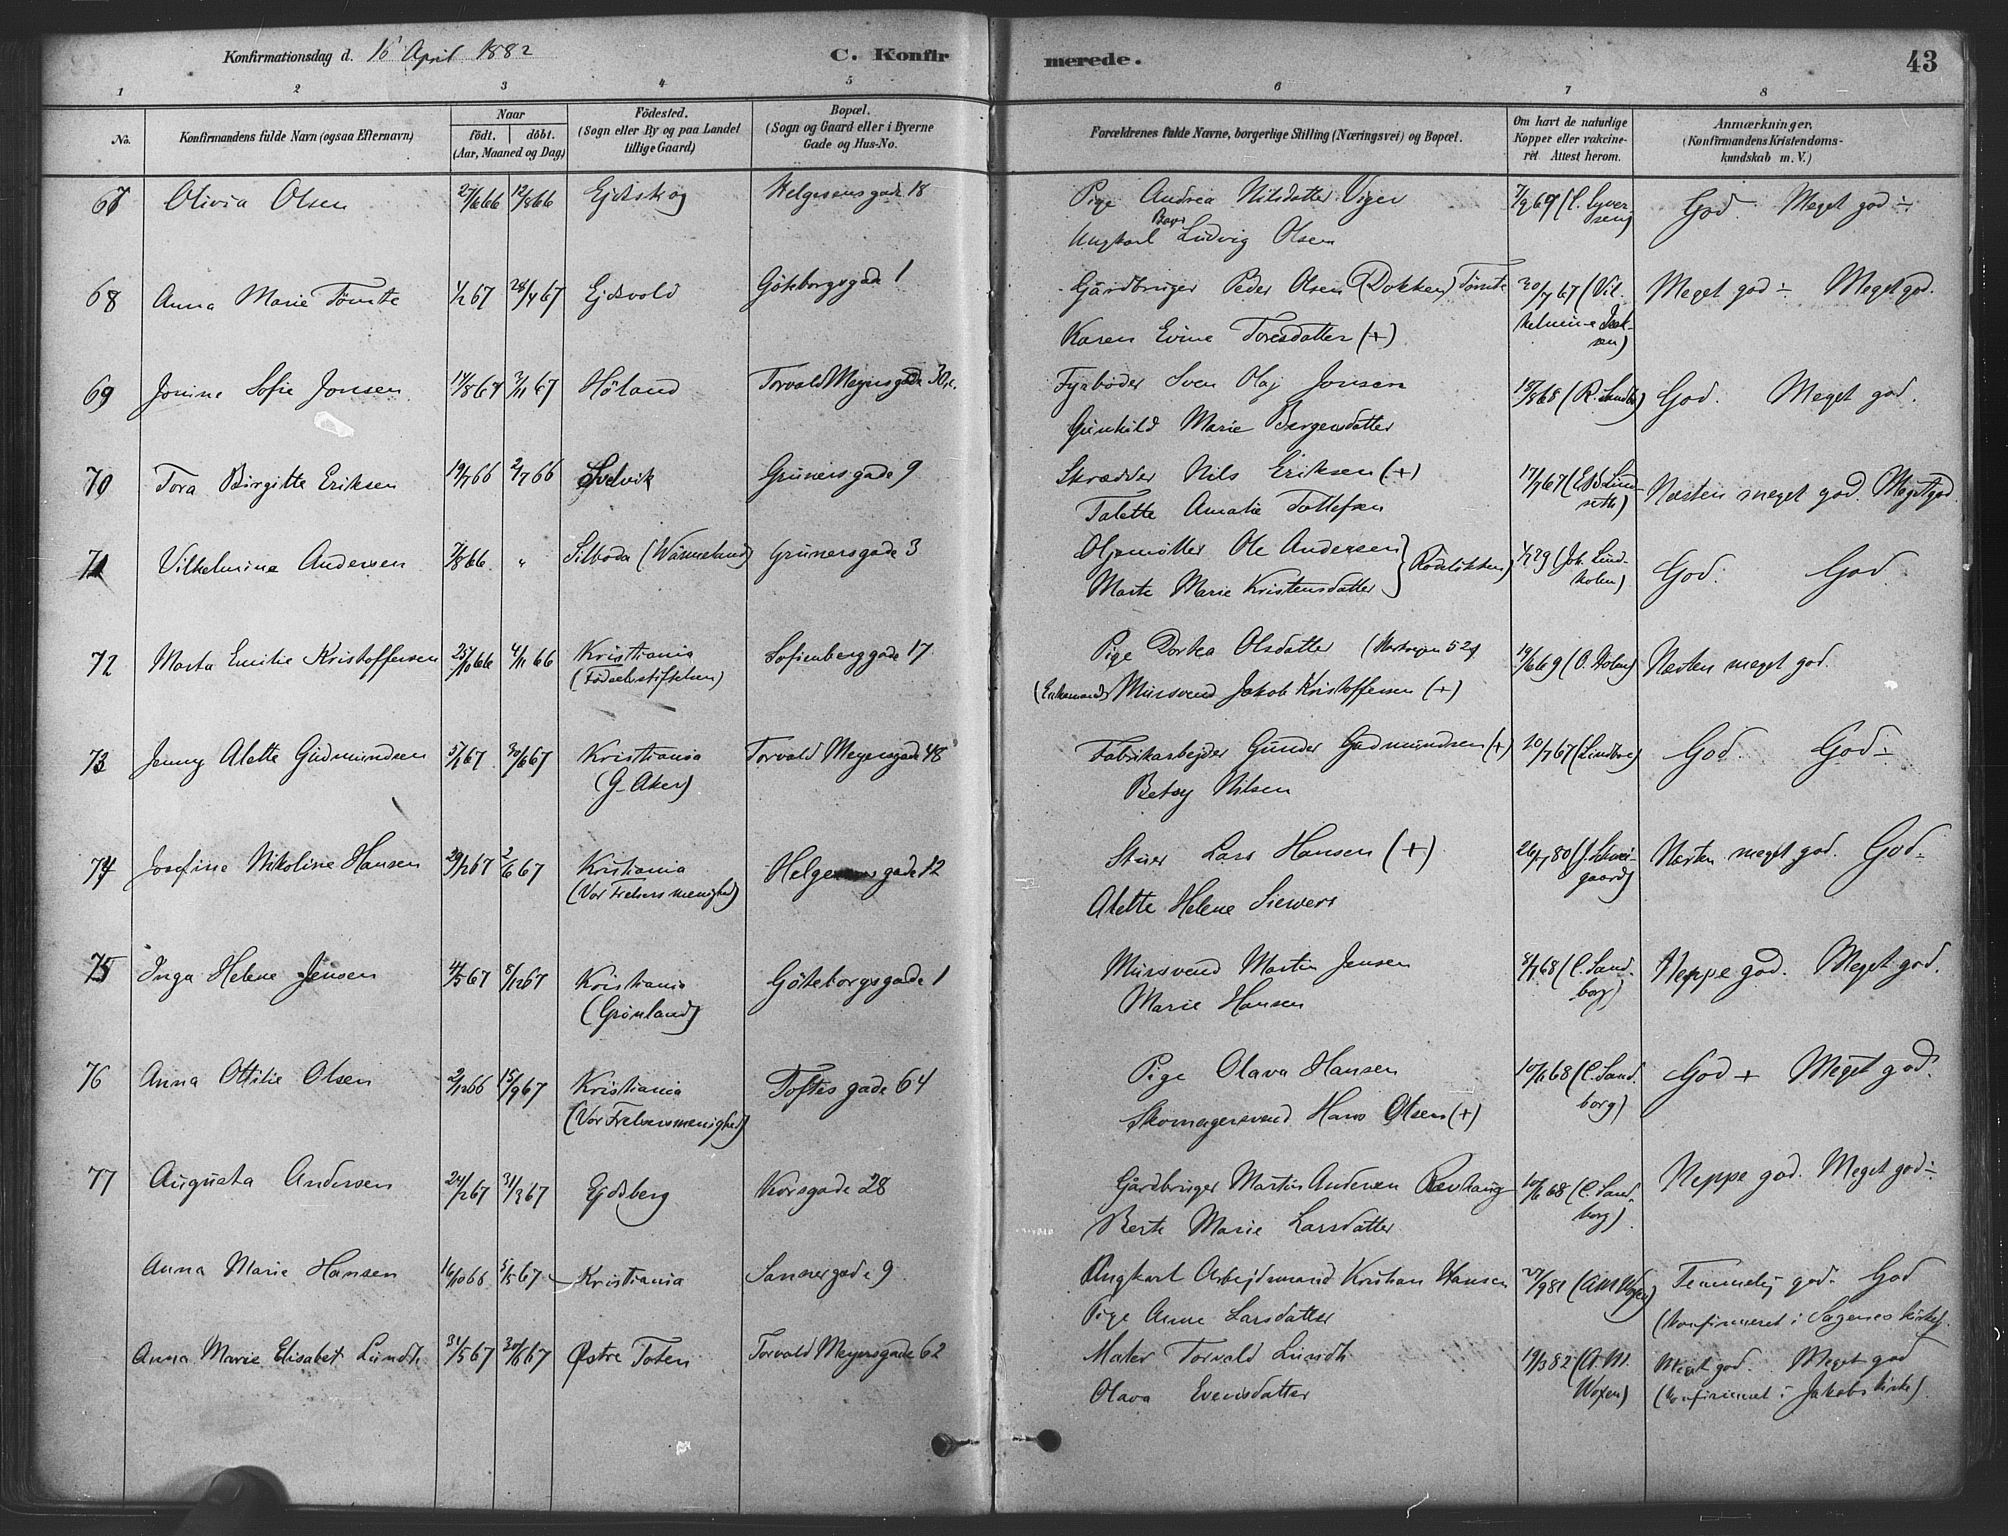 Konfirmationsdag d. 16 April 1882 C. Konfirmerede. 43
1 2 3 4 5 6 7 8
No. Konfirmandens fulde Navn (ogsaa Efternavn) Naar födt. döbt. (Aar, Maaned og Dag) Födested. (Sogn eller By og paa Landet tillige Gaard) Bopæl. (Sogn og Gaard eller i Byerne Gade og Hus-No. Forældrenes fulde Navne, borgerlige Stilling (Næringsvei) og Bopæl. Om havt de naturlige Kopper eller vakcineret Attest herom. Anmærkninger. (Konfirmandens Kristendomskundskab m. V.)
67 Olivia Olsen 27/6 66 12/8 66 Ejdskog Helgesensgade 18 Pige Andrea Nilsdatter Viger 7/9 69 (C. Syver- God. Meget god ÷
Ungkarl Ludvig Olsen sen)
68 Anna Marie Tømte 1/2 67 28/4 67 Ejdsvold Göteborgsgade 1 Gårdbruger Peder Olsen (Dokken) Tømte 30/7 67 (Vil- Meget god ÷ Meget god.
Karen Evine Toresdatter (+) helmine Isaksen)
69 Jonine Sofie Jonsen 14/8 67 3/11 67 Höland Torvald Meyersgade 30, c. Fyrböder Sven Olaj Jonsen 18/8 68 (R. Sandbo) God. Meget god.
Gunhild Marie Børgersdatter
70 Tora Birgitte Eriksen 19/1 66 2/7 66 Svelvik Grünersgade 9 Skrædder Nils Eriksen (+) 17/7 67 (E. B. Lundseth) Næsten meget god. Meget god
Talette Amalie Tollefsen
71 Vilhelmine Andersen 7/8 66 „ Silboda (Wärmeland) Grünersgade 3 Oljemöller Ole Andersen (Joh. Lindholm) God. God
Marte Marie Kristensdatter } Rodelökken)
72 Marta Emilie Kristoffersen 25/10 66 4/11 66 Kristiania Sofienberggade 17 Pige Dortea Olsdatter 19/6 69 (O. Holm) Næsten meget god.
(Födselsstiftelsen) (Enkemand) Mursvend Jakob Kristoffersen (+)
73 Jenny Alette Gudmundsen 5/1 67 30/6 67 Kristiania Torvald Meyersgade 48 Fabrikarbejder Gunder Gudmundsen (+) 20/7 67 (Lindboe) God God ÷
(G. Aker) Betsy Nilsen
74 Josefine Nikoline Hansen 29/1 67 2/6 67 Kristiania Helgesensgade 12 Stuer Lars Hansen (+) 26/1 80 (J. Schweigaard) Næsten meget god. God ÷
(Vor Frelsers menighed) Alette Helene Siewers
75 Inga Helene Jensen 4/5 67 8/12 67 Kristiania Göteborgsgade 1 Mursvend Martin Jensen 8/7 68 (C. Sandborg) Neppe god. Meget god.
(Grønland) Marie Hansen
76 Anna Otilie Olsen 2/12 66 15/9 67 Kristiania Toftes gade 64 Pige Olava Hansen 10/11 68 (C. Sandborg) God + Meget god.
(Vor Frelsersmenighed) Skomagersvend Hans Olsen (+)
77 Augusta Andersen 24/2 67 31/3 67 Ejdsberg Korsgade 28 Gårdbruger Martin Andersen Revhaug 10/6 68 (C. Sandborg) Neppe god. Meget god ÷
Berte Marie Larsdatter
Anna Marie Hansen 16/10 66 5/5 67 Kristiania Sannergade 9 Ungkarl Arbejdsmand Kristian Hansen 27/9 81 (A M Woxen) Temmelig god. God
Pige Anne Larsdatter (Konfirmeret i Sagenes kirke).
Anna Marie Elisabet Lundt 31/5 67 30/6 67 Østre Toten Torvald Meyersgade 62 Maler Torvald Lundth 19/3 82 (A. M. Woxen) Meget god. Meget god
Olava Evensdatter (Konfirmeret i Jakobs kirke).